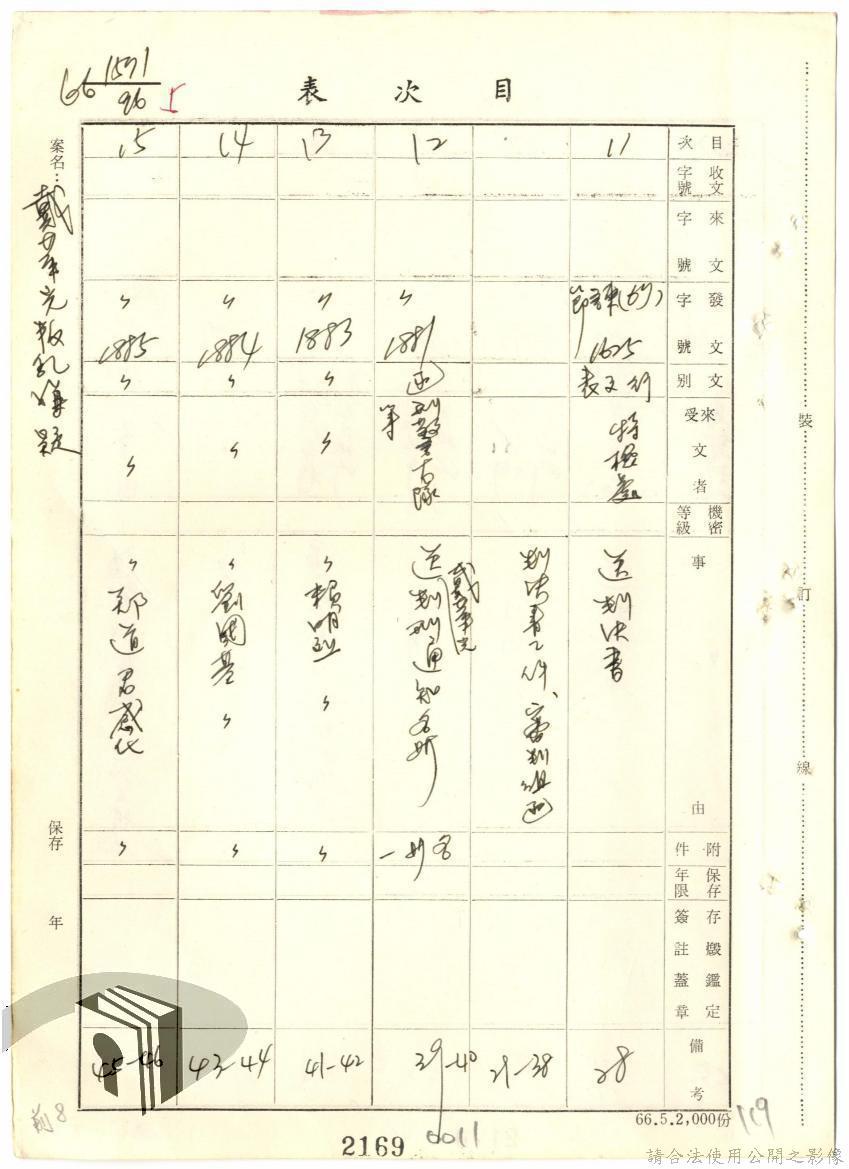 66 1571/96 5
目次表
案名：戴華光叛亂嫌疑
保存 年
目次 11 12 13 14 15
收文字號
來文字號
發文字號 (67) 1625 〃 1881 〃 1883 〃 1884 〃 1885
文別 函 〃 〃 〃
來受文者 等 〃 〃 〃
機密等級
事由
送判決書
判決書乙件、審判組函
戴華光
〃 賴明烈 〃
〃 劉國基 〃
〃 鄭道君感化
附件 各一份 〃 〃 〃
保存年限
存燬鑑定簽註蓋章
備考 28 29-38 39-40 41-42 43-44 45-46
裝訂線
66.5.2,000份
119
前8
2169
0011
請合法使用公開之影像